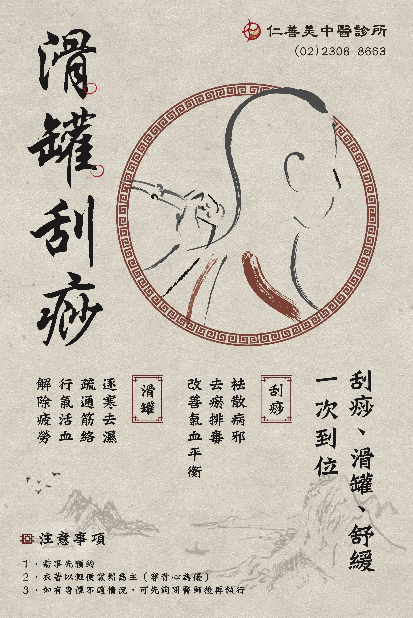 仁善美中醫診所
(02)2308-8663
滑罐刮痧
刮痧、滑罐、舒緩
一次到位
刮痧
祛散病邪
去瘀排毒
改善氣血平衡
滑罐
逐寒去濕
疏通筋絡
行氣活血
解除疲勞
注意事項
1．需事先預約
2．衣著以輕便寬鬆為主（露背心為優）
3．如有身體不適情況，可先詢問醫師後再執行